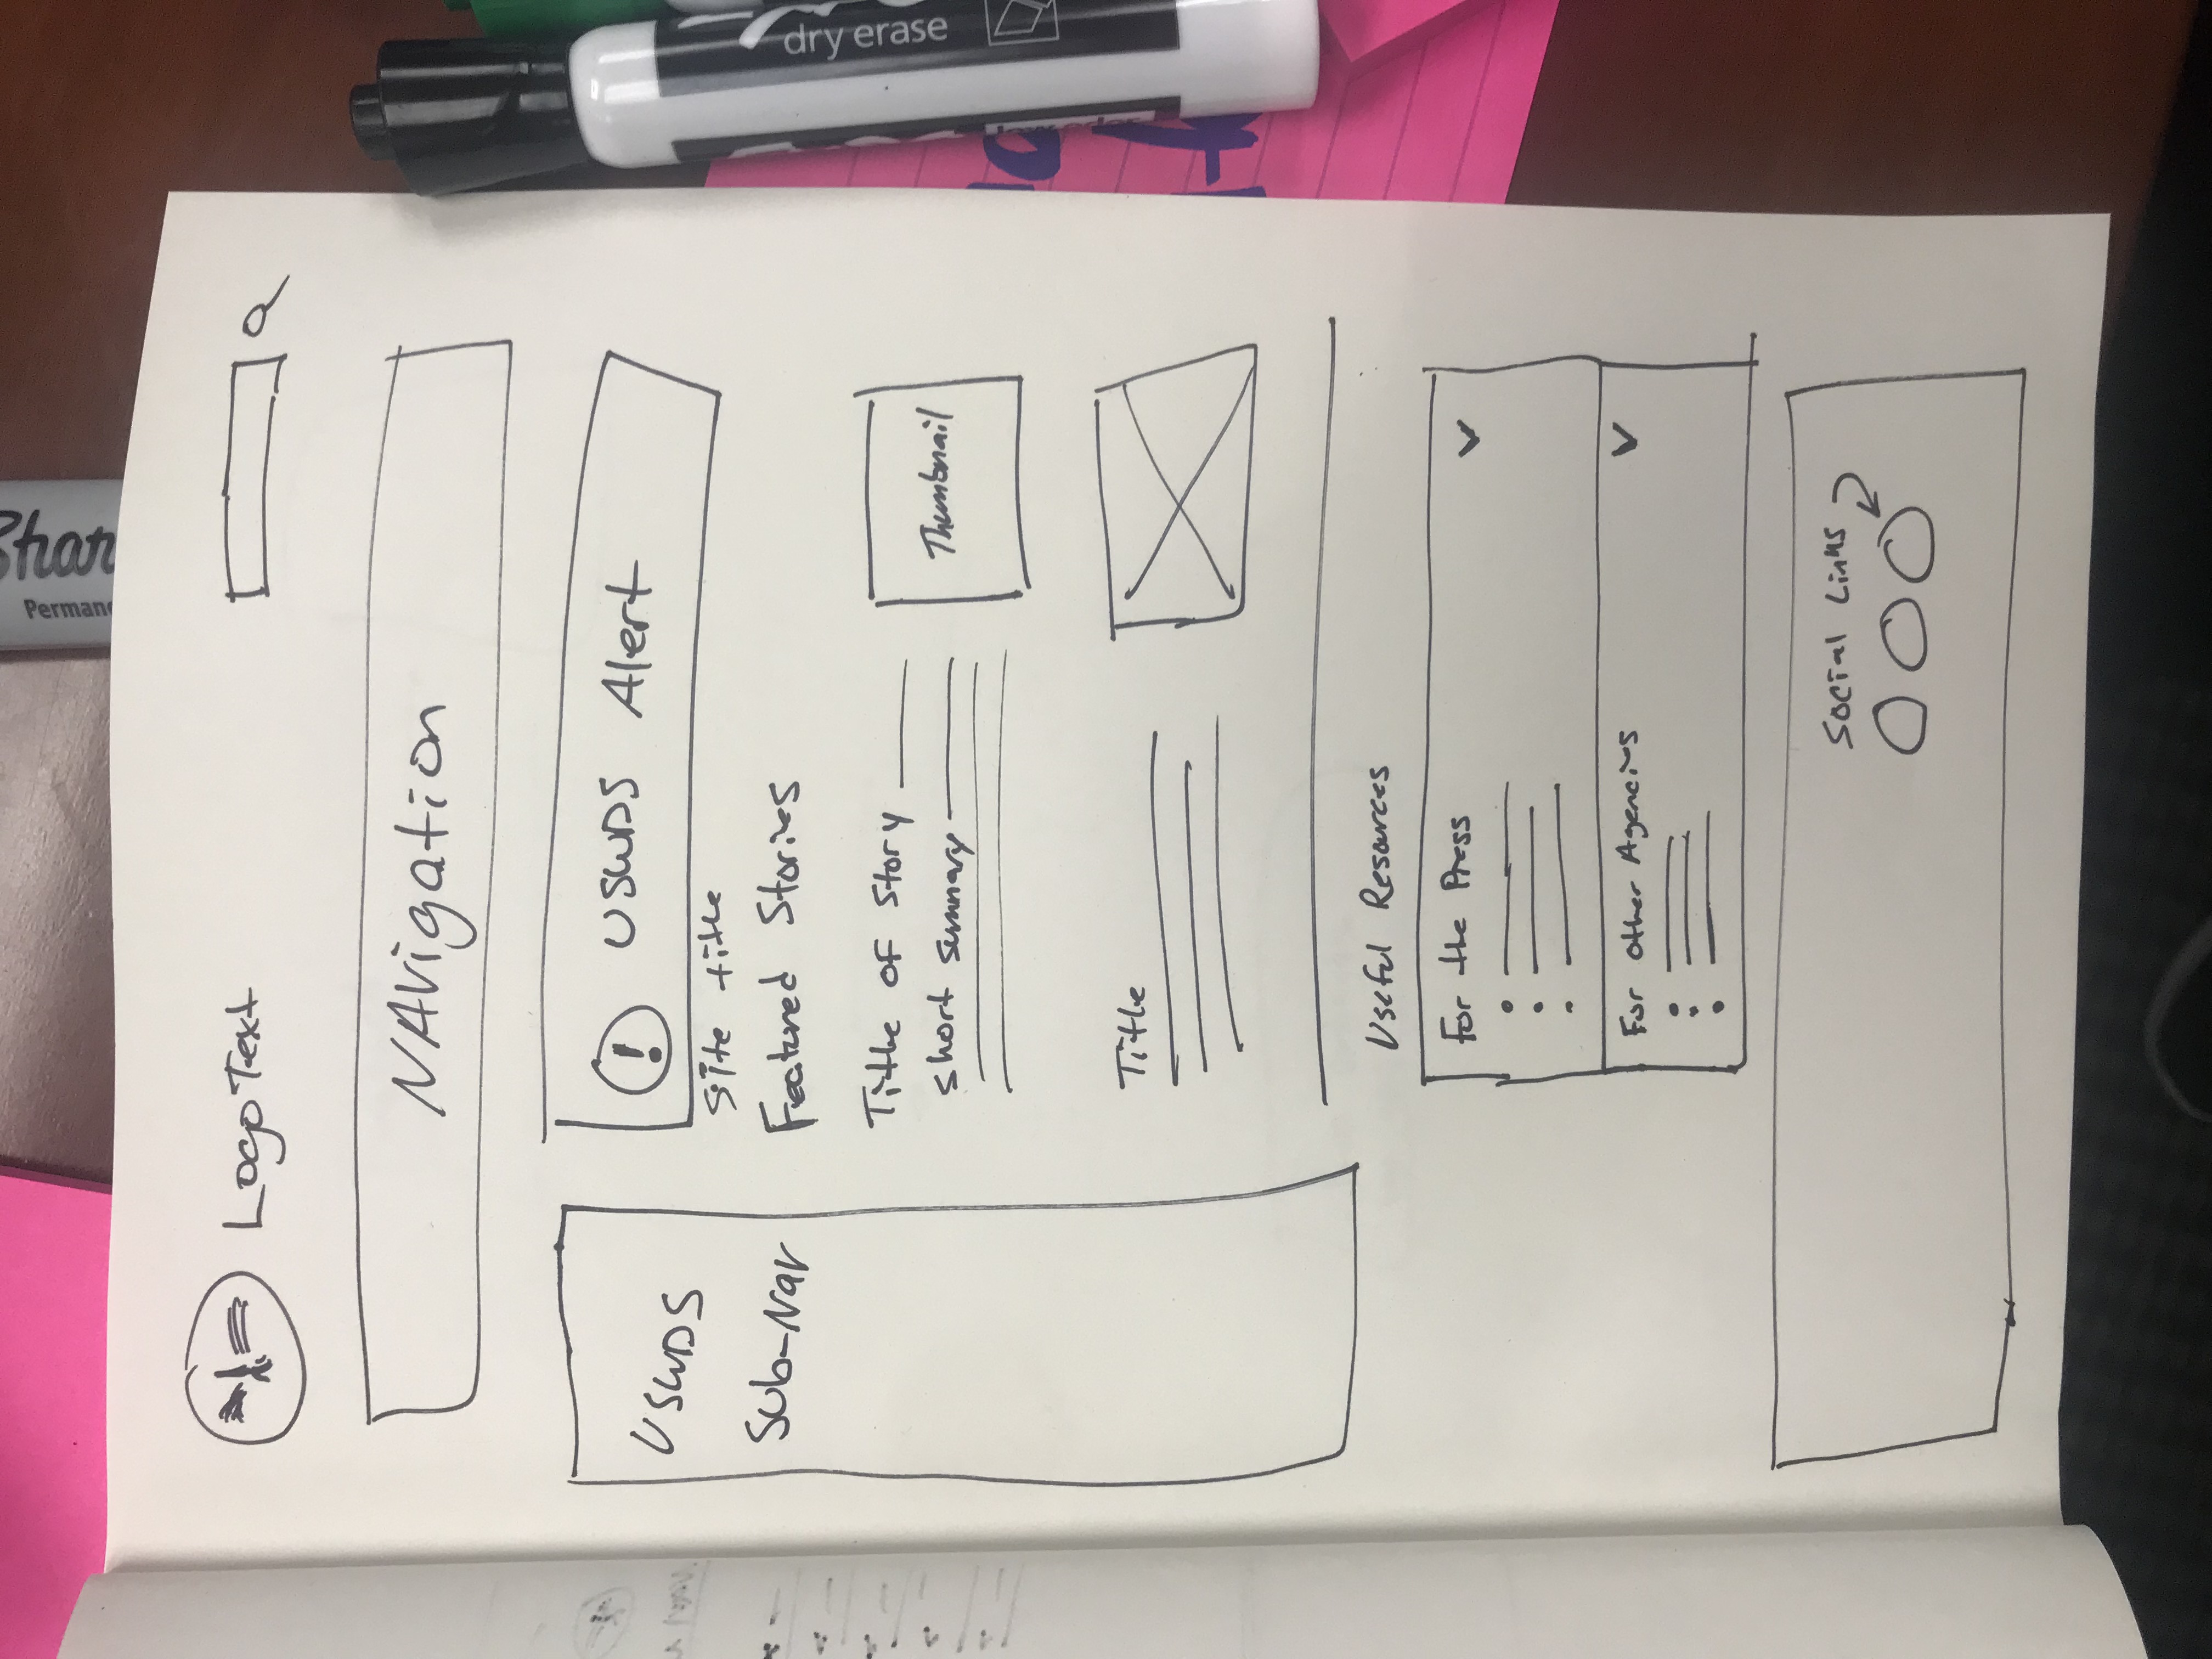 Shar
Permane
Logo Text
NAvigation
USWDS
Sub-Nav
! USWDS Alert
Site title
Featured Stories
Title of Story
short summary
Thumbnail
Title
Useful Resources
For the Press
For other Agencies
Social Links
dry erase